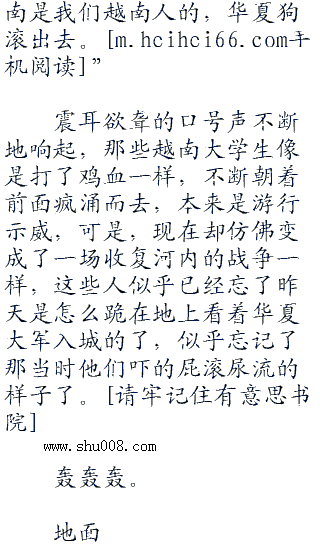 南是我们越南人的，华夏狗
滚出去。[m.hcihci66.com手
机阅读]”
震耳欲聋的口号声不断
地响起，那些越南大学生像
是打了鸡血一样，不断朝着
前面疯涌而去，本来是游行
示威，可是，现在却仿佛变
成了一场收复河内的战争一
样，这些人似乎已经忘了昨
天是怎么跪在地上看着华夏
大军入城的了，似乎忘记了
那当时他们吓的屁滚尿流的
样子了。[请牢记住有意思书
院]
www.shu008.com
轰轰轰。
地面